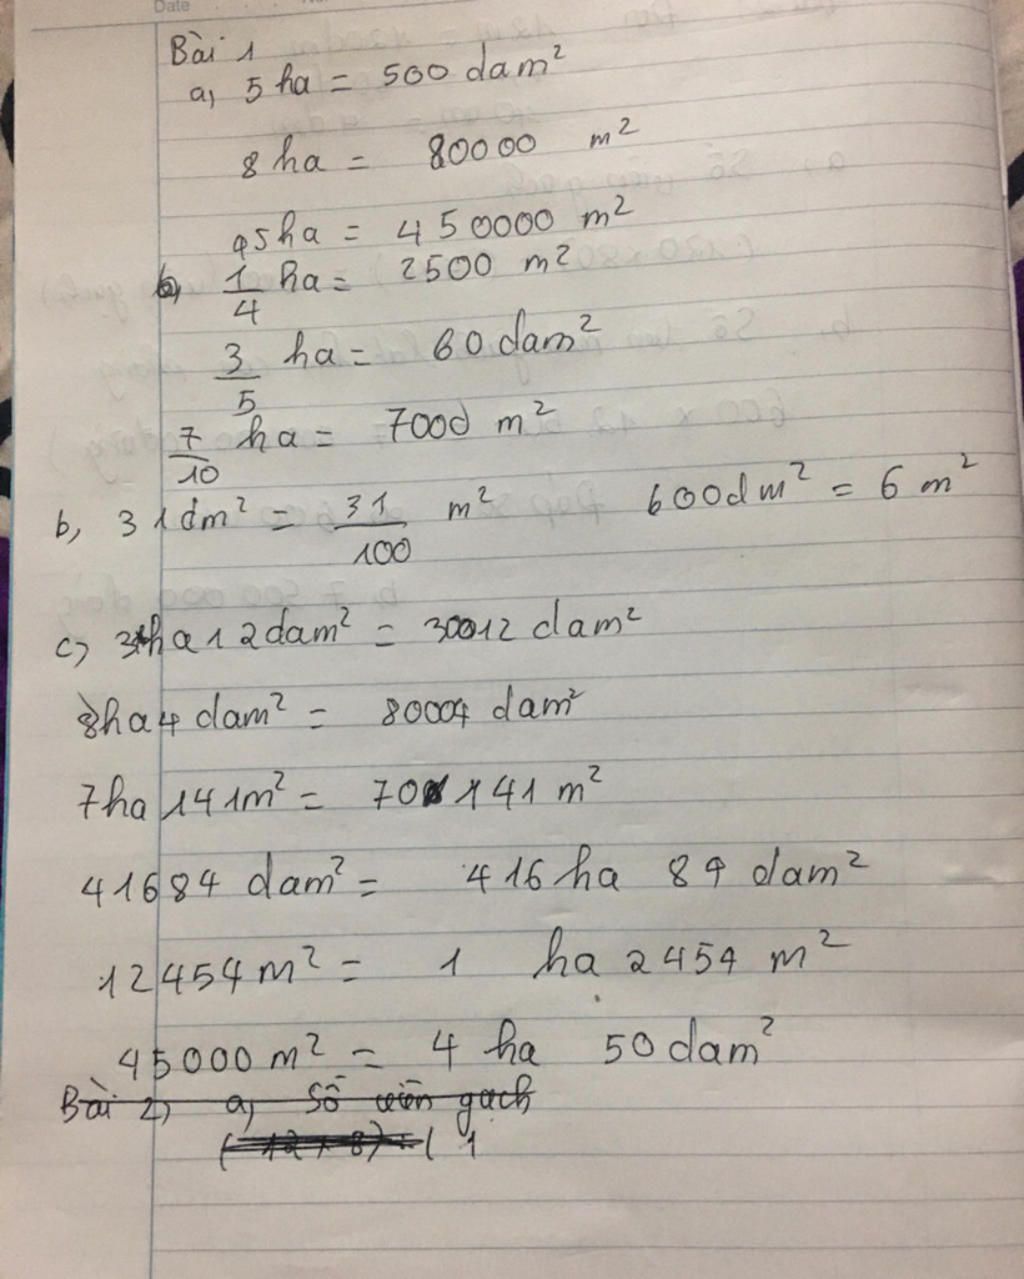 Date
Bài 1
a, 5 ha = 500 dam²
8 ha = 80000 m²
45ha = 450000 m²
b, 1/4 ha = 2500 m²
3/5 ha = 60 dam²
7/10 ha = 7000 m²
b, 31dm² = 31/100 m² 600dm² = 6 m²
c, 3ha 12dam² = 30012 dam²
8ha 4 dam² = 80004 dam²
7ha 141m² = 70141 m²
41684 dam² = 416 ha 84 dam²
12454m² = 1 ha 2454 m²
45000 m² = 4 ha 50 dam²
Bài 2) a, Số viên gạch
(12 + 8) = ( 1